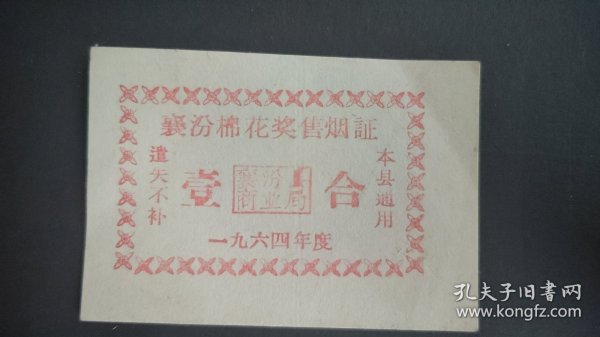 襄汾棉花奖售烟証
遺失不补
壹
合
襄汾
商业局
本县通用
一九六四年度
孔夫子旧書网
www.kongfz.com